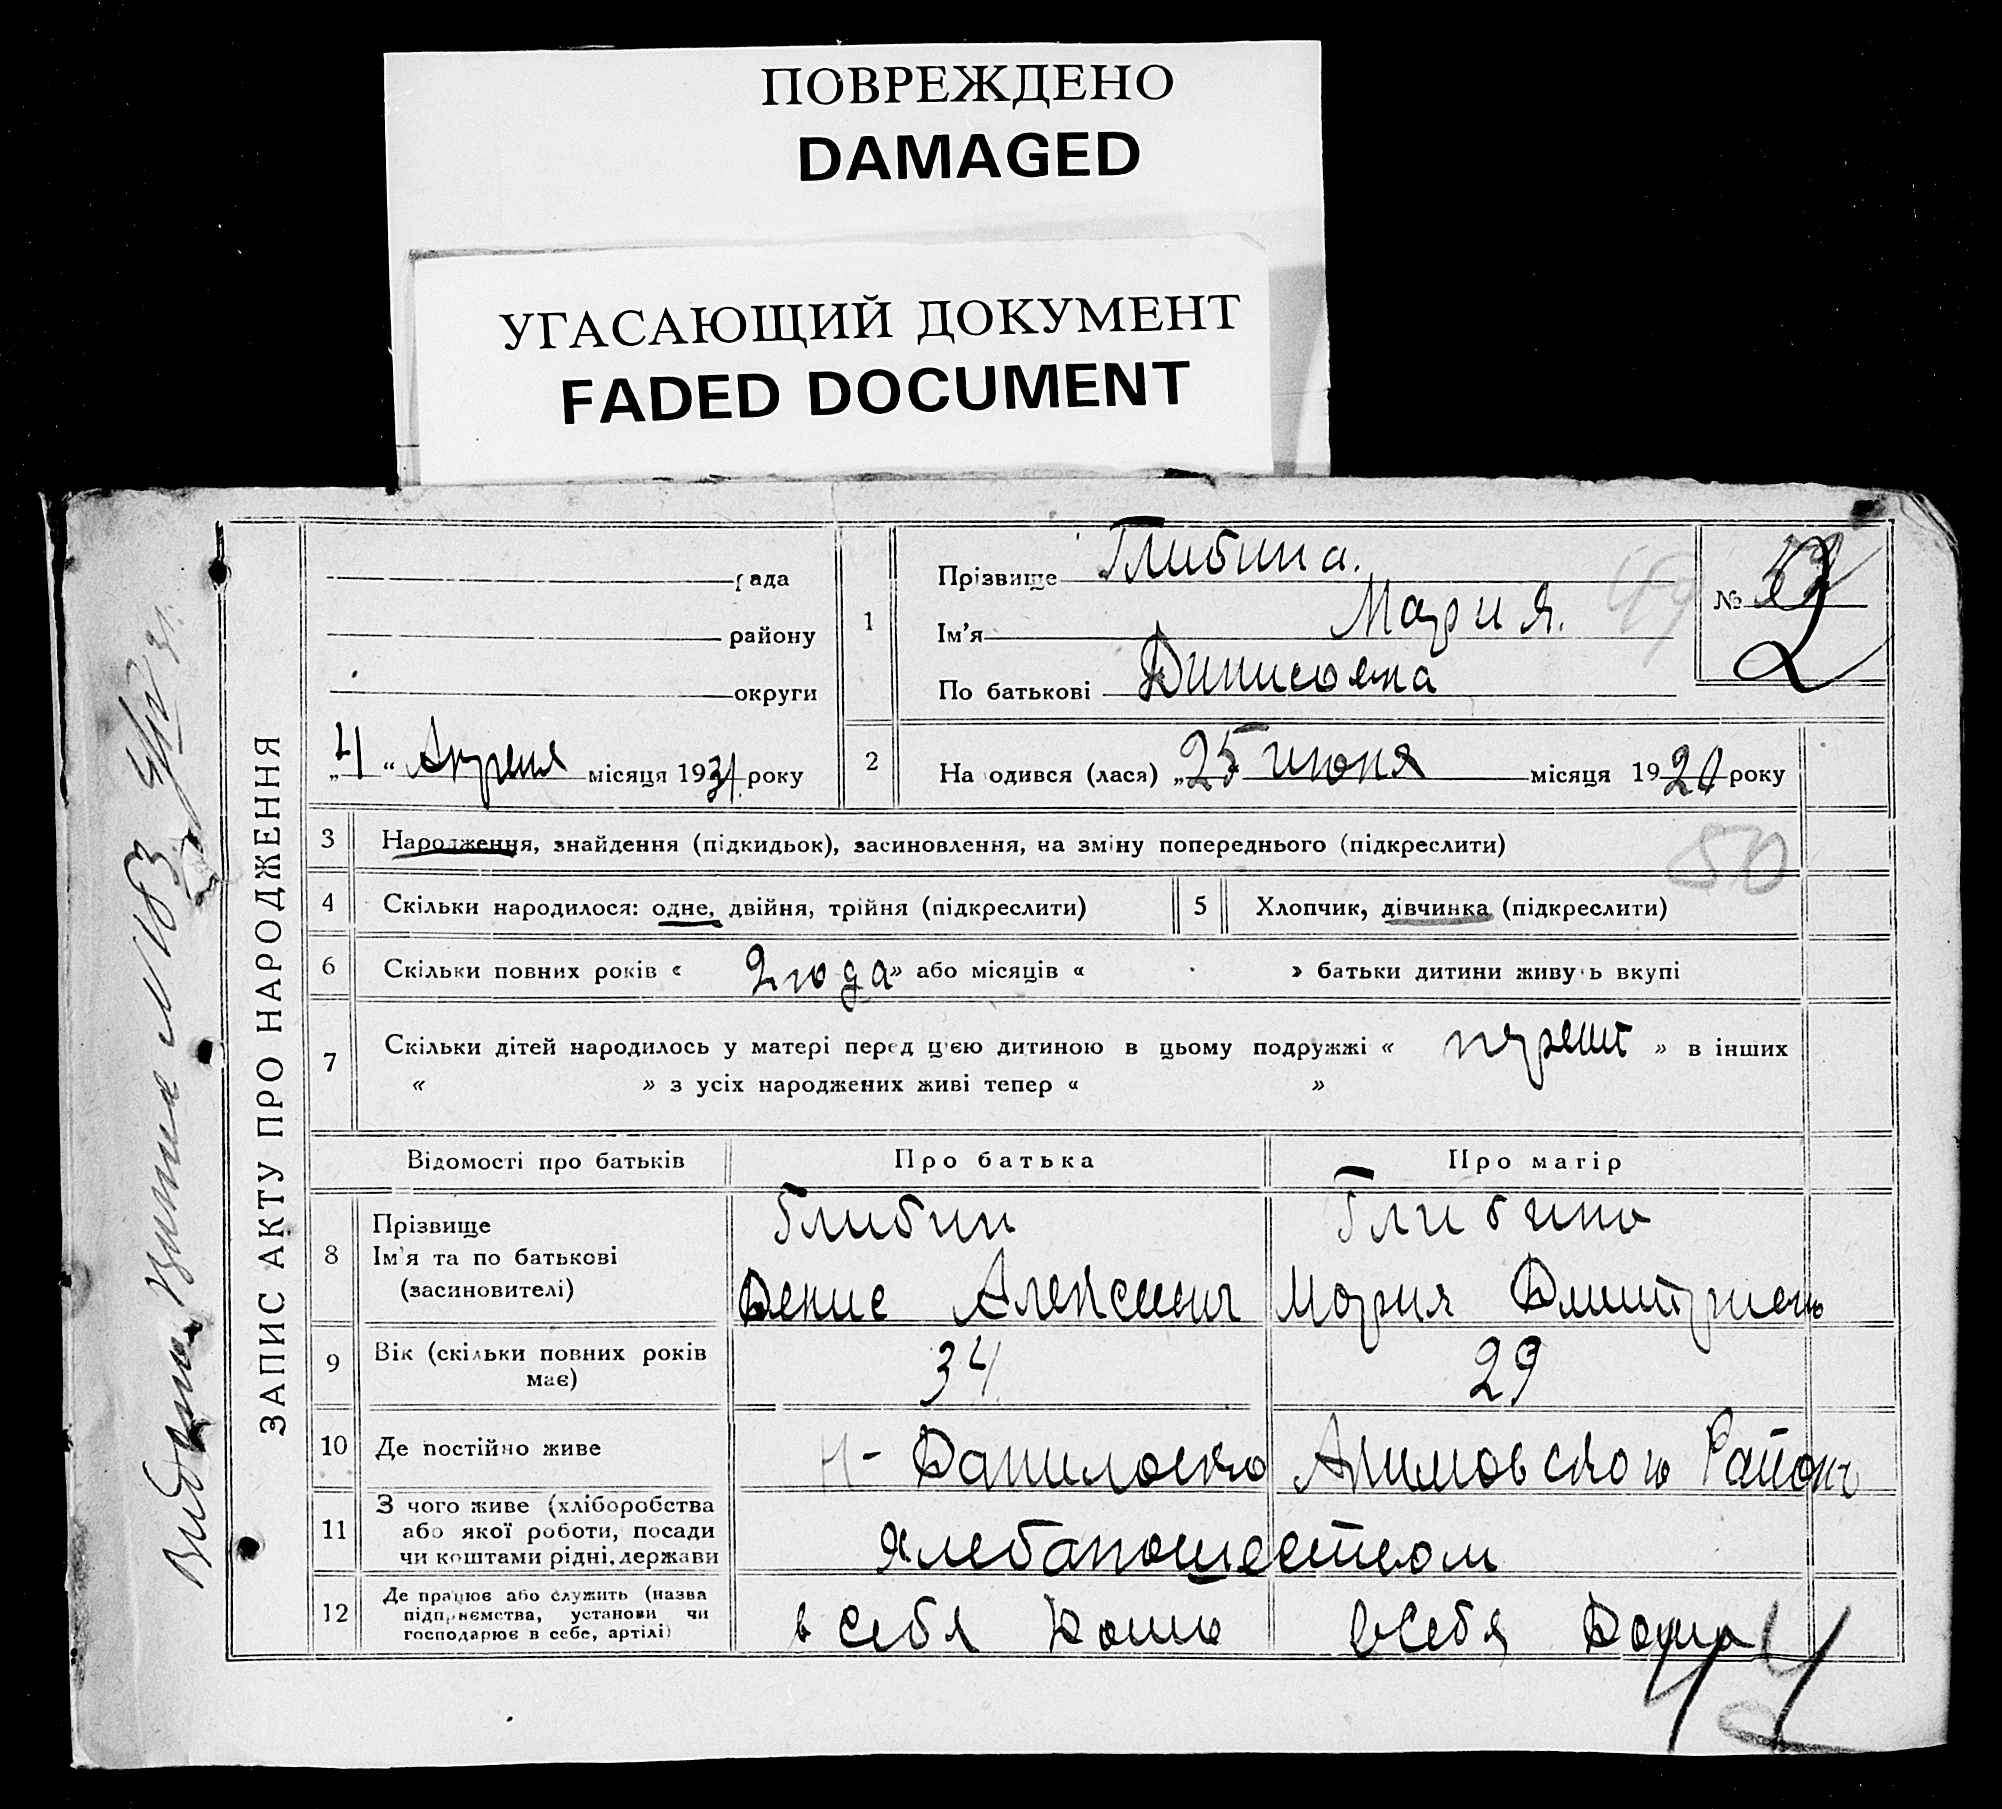 ПОВРЕЖДЕНО
DAMAGED
УГАСАЮЩИЙ ДОКУМЕНТ
FADED DOCUMENT
ЗАПИС АКТУ ПРО НАРОДЖЕННЯ
рада
району
округи
„4“ Апреля місяця 1931 року
1
Прізвище Глибина.
Ім'я Мария.
По батькові
№
2
49
2 Народився (лася) „25 июня місяця 1920 року
3 Народження, знайдення (підкидьок), засиновлення, на зміну попереднього (підкреслити)
50
4 Скільки народилося: одне, двійня, трійня (підкреслити)
5 Хлопчик, дівчинка (підкреслити)
6 Скільки повних років « 2 года » або місяців « » батьки дитини живуть вкупі
7 Скільки дітей народилось у матері перед цією дитиною в цьому подружжі « » в інших
« » з усіх народжених живі тепер « »
Відомості про батьків Про батька Про матір
8 Прізвище
Ім'я та по батькові
(засиновителі)
Глибин
Денис Алексеевич
Глибина
Мария
9 Вік (скільки повних років
має)
34 29
10 Де постійно живе
11 З чого живе (хліборобства
або якої роботи, посади
чи коштами рідні, держави
12 Де працює або служить (назва
підприємства, установи чи
господарює в себе, артілі)
в себя дома
в себя дома